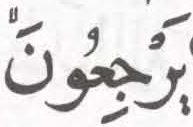 يَرْجِعُونَ